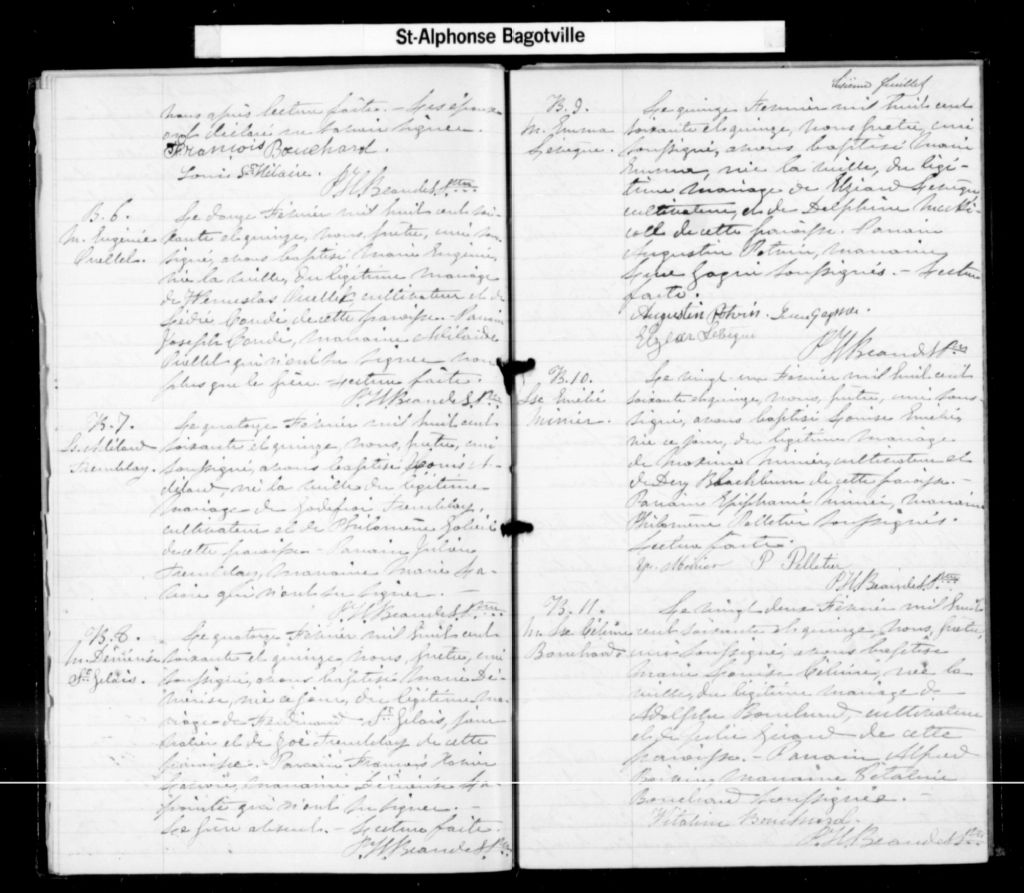 St-Alphonse Bagotville
nous après lecture faite. – Les époux
ont déclaré ne savoir signer.
François Bouchard.
Louis St Hilaire.
P.H. Beaudet Ptre
B. 6.
M. Eugénie
Ouellet.
Le douze Février mil huit cent soi-
xante et quinze, nous, prêtre, curé sous-
signé, avons baptisé Marie Eugénie,
née la veille, du légitime mariage
de Wenceslas Ouellet, cultivateur et de
de cette paroisse. Parrain
Joseph marraine Adélaïde
Ouellet qui n'ont su signer non
plus que le père. Lecture faite.
P.H. Beaudet Ptre
B. 7.
Ls. Adélard
Tremblay.
Le quatorze Février mil huit cent
soixante et quinze, nous, prêtre, curé
soussigné, avons baptisé Louis A-
délard, né la veille du légitime
mariage de Godefroi Tremblay,
cultivateur et de Philomène
de cette paroisse – Parrain Julien
Tremblay, marraine Marie Sa-
voie qui n'ont su signer. –
P.H. Beaudet Ptre
B. 8.
M. Démérise
St. Gelais.
Le quatorze Février mil huit cent
soixante et quinze, nous, prêtre, curé
soussigné, avons baptisé Marie Dé-
mérise, née ce jour, du légitime ma-
riage de Ferdinand St. Gelais, jour-
nalier et de Zoé Tremblay de cette
paroisse. Parrain François Xavier
Savoie, marraine Démérise La-
pointe qui n'ont su signer. –
Le père absent. – Lecture faite.
P.H. Beaudet Ptre
Sixième feuillet
B. 9.
M. Emma
Levesque.
Le quinze Février mil huit cent
soixante et quinze, nous prêtre, curé
soussigné, avons baptisé Marie
Emma, née la veille, du légi-
time mariage de Elzéard Levesque
cultivateur, et de Delphine McNi-
coll de cette paroisse. Parrain
Augustin Potvin, marraine
Gagné soussignés. – Lecture
faite.
Augustin Potvin.
Elzear Levesque
P.H. Beaudet Ptre
B. 10.
Lse Emélie
Minier.
Le vingt-un Février mil huit cent
soixante et quinze, nous, prêtre, curé sous-
signé, avons baptisé Louise Emélie,
née ce jour, du légitime mariage
de Maxime Minier, cultivateur et
de Blackburn de cette paroisse. –
Parrain Epiphane Minier, marraine
Philomène Pelletier soussignés.
Lecture faite.
Ep. Minier P Pelletier
P.H. Beaudet Ptre
B. 11.
M. Lse Célina
Bouchard
Le vingt deux Février mil huit
cent soixante et quinze, nous, prêtre,
curé soussigné, avons baptisé
Marie Louise Célina, née la
veille, du légitime mariage de
Adolphe Bouchard, cultivateur
et de Julie Girard de cette
paroisse. – Parrain Alfred
marraine Vitaline
Bouchard soussignée. –
Vitaline Bouchard.
P.H. Beaudet Ptre